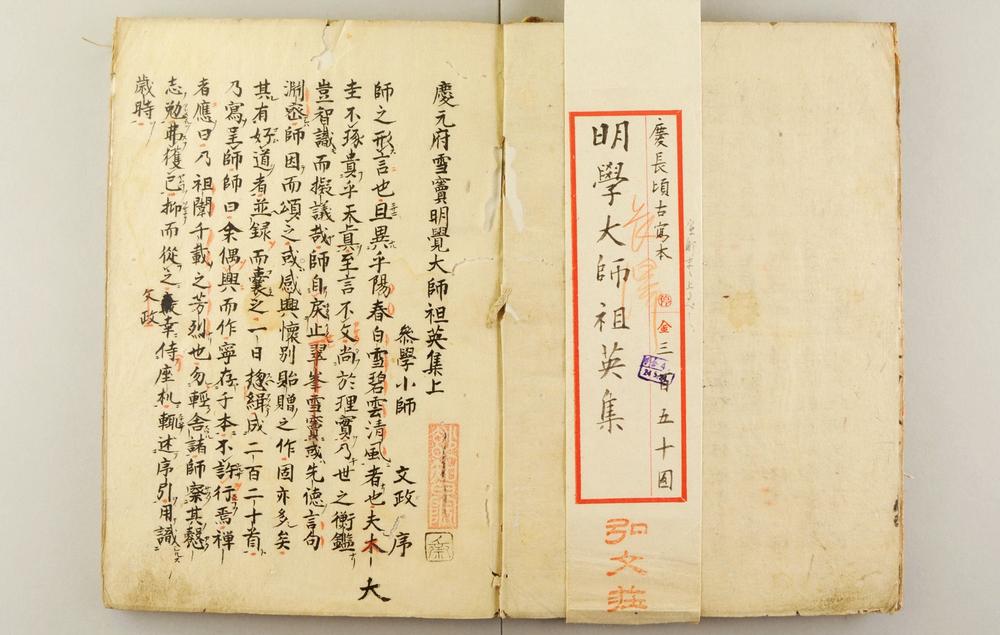 慶長頃古寫本
明學大師祖英集
金三百五十圓
弘文荘
慶元府雪竇明覺大師祖英集上
叅學小師 文政 序
師之形言也且異乎陽春白雪碧雲清風者也夫木大
圭不琢貴乎天眞至言不文尚於理實乃世之衡鑑
豈智識而擬議哉師自戾止翠峯雪竇或先德言句
淵密師因而頌之或感興懷別貽贈之作固亦多矣
其有好道者並録而囊之一日揔緝成二百二十首
乃寫呈師師曰余偶興而作寧存于本不許行焉禅
者應曰乃祖闡千載之芳烈也勿輕舍諸師察其懇
志勉弗獲已抑而從之文政幸侍座机輙述序引用識
歳時